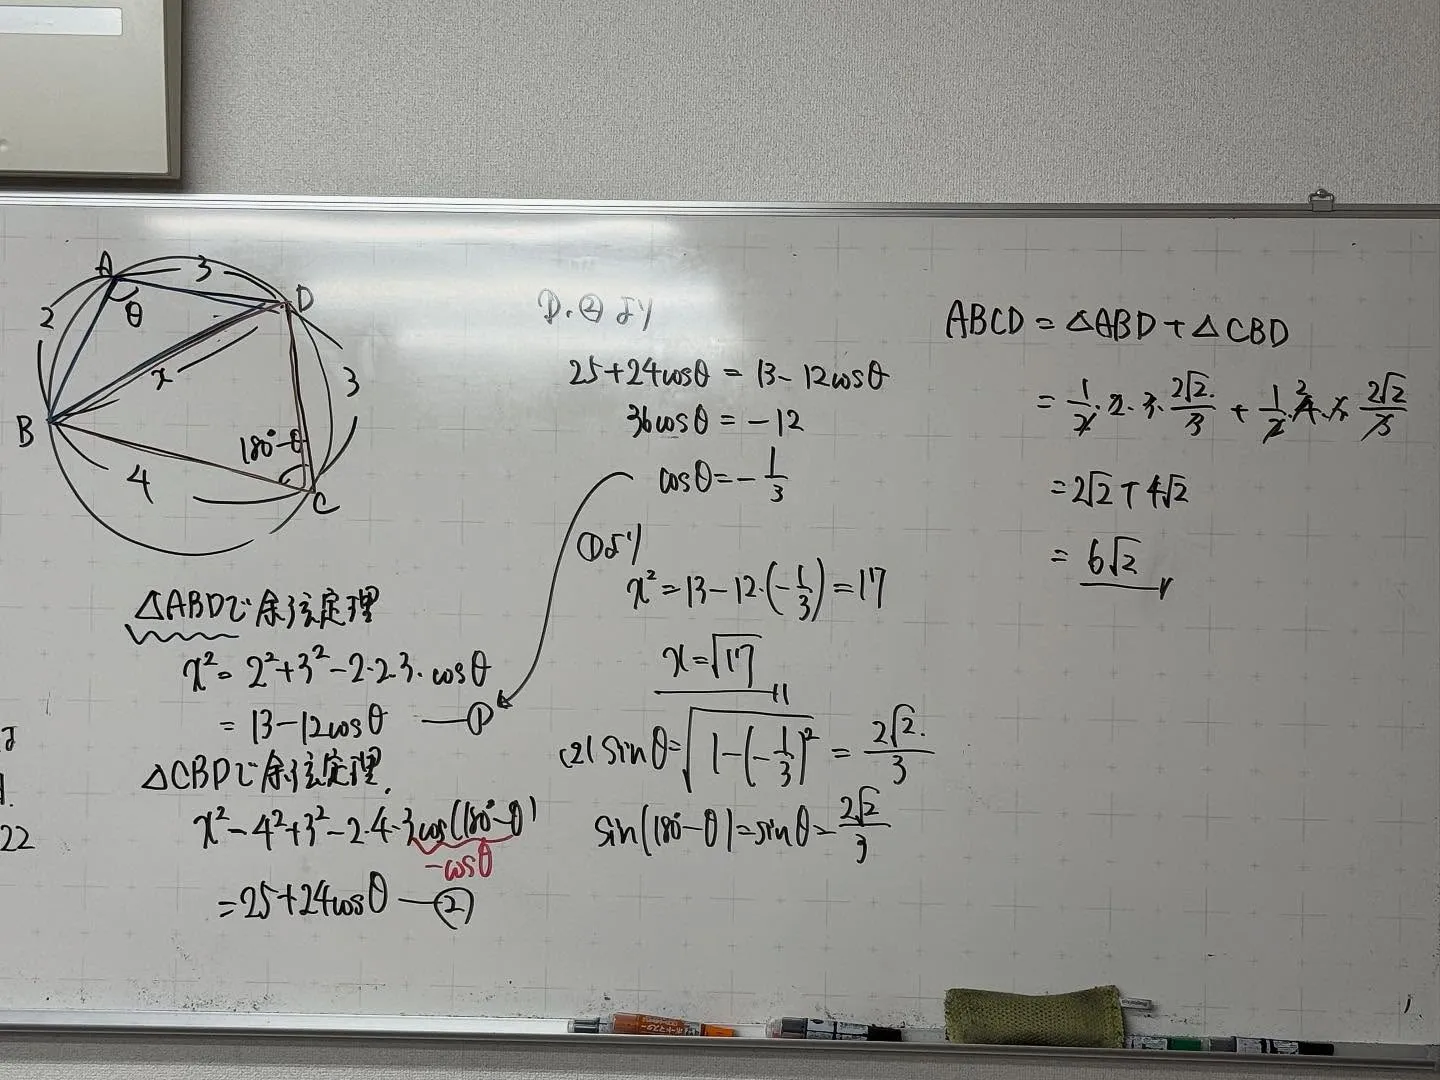 A
3
D
θ
2
x
3
B
180°-θ
4
C
△ABDで余弦定理
x²= 2²+3²-2·2·3·cosθ
= 13-12cosθ —①
△CBDで余弦定理.
x²-4²+3²-2·4·3cos(180°-θ)
-cosθ
=25+24cosθ —②
22
①.②より
25+24cosθ = 13-12cosθ
36cosθ = -12
cosθ=-1/3
①より
x²=13-12·(-1/3)=17
x=√17
(2) sinθ=√1-(-1/3)² = 2√2/3
sin(180°-θ)=sinθ=2√2/3
ABCD = △ABD+△CBD
= 1/2·2·3·2√2/3 + 1/2·4·3·2√2/3
=2√2+4√2
= 6√2